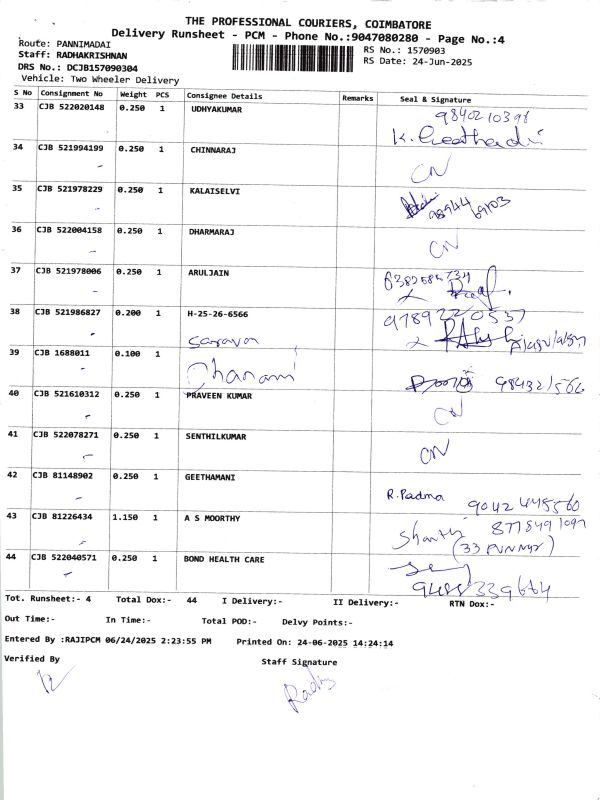 THE PROFESSIONAL COURIERS, COIMBATORE
Delivery Runsheet - PCM - Phone No.:9047080280 - Page No.:4
Route: PANNIMADAI
RS No.: 1570903
Staff: RADHAKRISHNAN
RS Date: 24-Jun-2025
DRS No.: DCJB157090304
Vehicle: Two Wheeler Delivery
S No Consignment No Weight PCS Consignee Details Remarks Seal & Signature
33 CJB 522020148 0.250 1 UDHYAKUMAR
34 CJB 521994199 0.250 1 CHINNARAJ
CN
35 CJB 521978229 0.250 1 KALAISELVI
98944 69103
36 CJB 522004158 0.250 1 DHARMARAJ
CN
37 CJB 521978006 0.250 1 ARULJAIN
38 CJB 521986827 0.200 1 H-25-26-6566
9789220537
39 CJB 1688011 0.100 1
40 CJB 521610312 0.250 1 PRAVEEN KUMAR
CN
41 CJB 522078271 0.250 1 SENTHILKUMAR
CN
42 CJB 81148902 0.250 1 GEETHAMANI
R. Padma
43 CJB 81226434 1.150 1 A S MOORTHY
44 CJB 522040571 0.250 1 BOND HEALTH CARE
Tot. Runsheet:- 4 Total Dox:- 44 I Delivery:- II Delivery:- RTN Dox:-
Out Time:- In Time:- Total POD:- Delvy Points:-
Entered By :RAJIPCM 06/24/2025 2:23:55 PM Printed On: 24-06-2025 14:24:14
Verified By Staff Signature